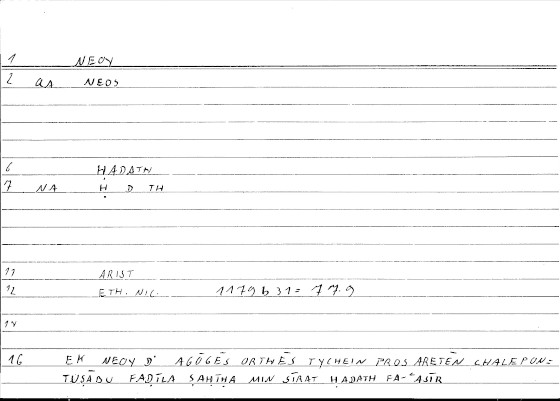 1 NEOY
2 QA NEOS
6 ḤADATH
7 NA Ḥ D TH
11 ARIST
12 ETH. NIC. 1179b31 = 77.9
14
16 EK NEOY D' AGŌGĒS ORTHĒS TYCHEIN PROS ARETĒN CHALEPON=
TUṢĀDU FAḌĪLA ṢAḤĪḤA MIN SĪRAT ḤADATH FA-ʿASĪR